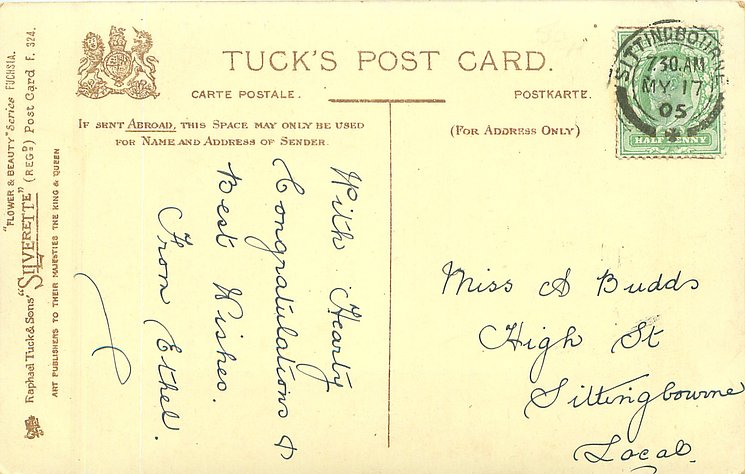 "FLOWER & BEAUTY" Series FUCHSIA.
Raphael Tuck & Sons' "SILVERETTE" (REGD) Post Card F. 324.
ART PUBLISHERS TO THEIR MAJESTIES THE KING & QUEEN
TUCK'S POST CARD.
CARTE POSTALE.
POSTKARTE.
IF SENT ABROAD, THIS SPACE MAY ONLY BE USED
FOR NAME AND ADDRESS OF SENDER.
(FOR ADDRESS ONLY)
SITTINGBOURNE
7 30. AM
MY 17
05
HALF PENNY
With Hearty
Congratulations &
Best Wishes.
From Ethel.
Miss A Budds
High St
Sittingbourne
Local.